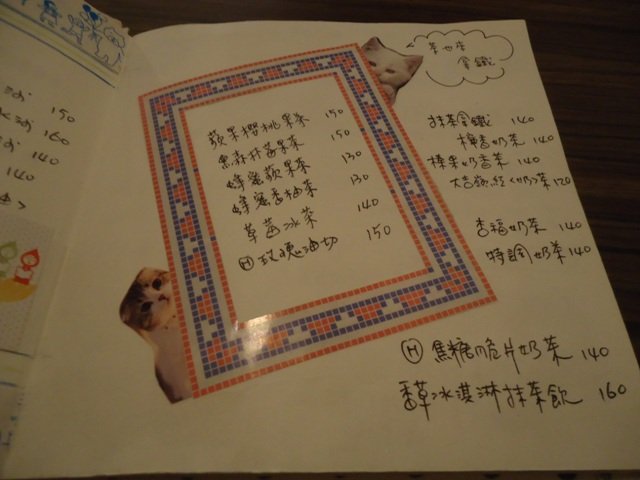 150
160
140
140
蘋果櫻桃果茶 150
黑森林莓果茶 150
蜂蜜蘋果茶 130
蜂蜜香柚茶 130
草莓冰茶 140
Ⓗ玫瑰油切 150
拿鐵
抹茶拿鐵 140
榛香奶茶 140
榛果奶香茶 140
大吉嶺紅<奶>茶 120
杏福奶茶 140
特調奶茶 140
Ⓗ焦糖脆片奶茶 140
香草冰淇淋抹茶飲 160